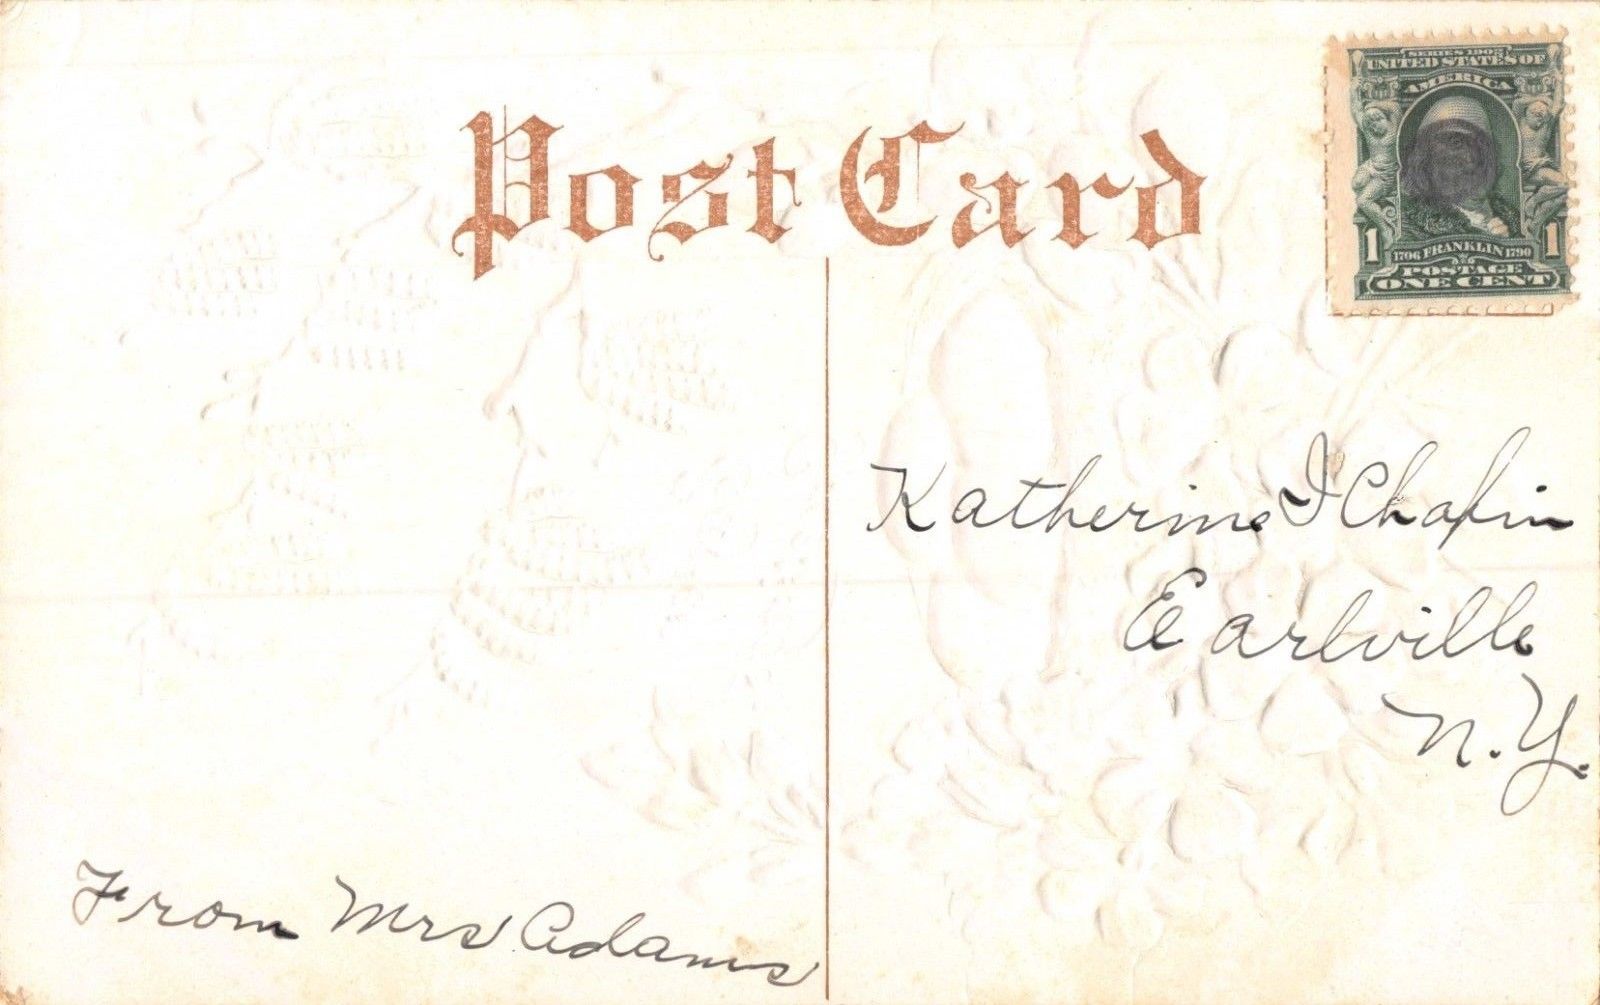 Post Card
SERIES 1902
UNITED STATES OF
AMERICA
1 1706 FRANKLIN 1790 1
POSTAGE
ONE CENT
Katherine I Chapin
Earlville
N.Y.
From Mrs Adams